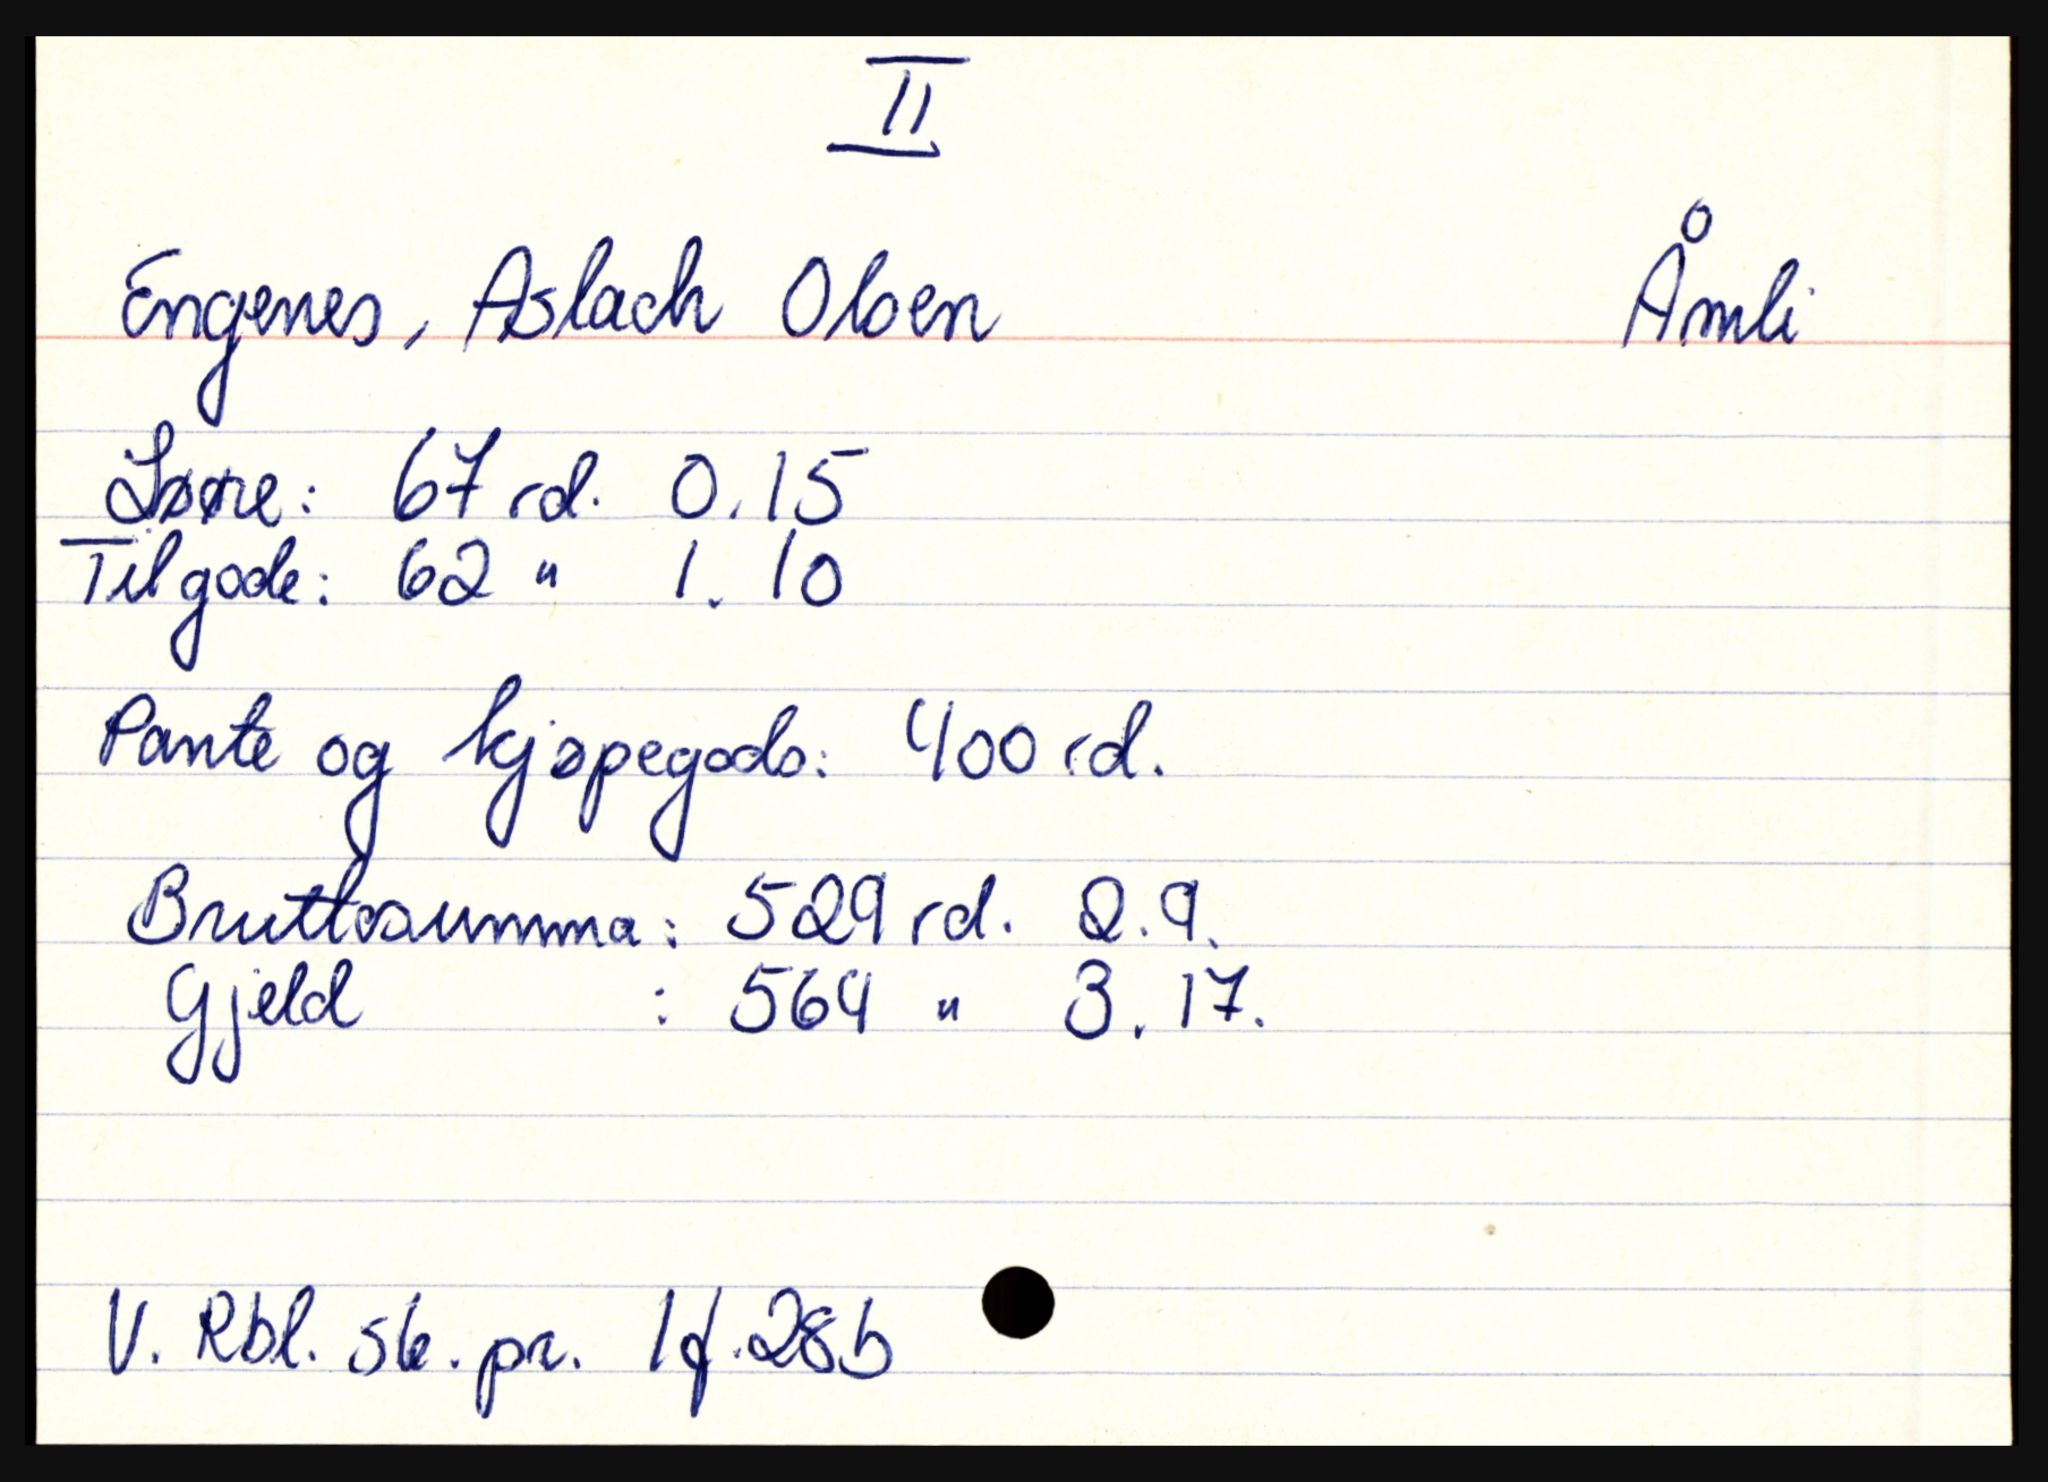 II
Engenes, Aslach Olsen Åmli
Løsøre: 67 rd. 0.15
Tilgode: 62 " 1. 10
Pante og kjøpegods: 400 rd.
Bruttosumma: 529 rd. 2.9.
Gjeld : 564 " 3. 17.
V. Rbl. sk. pr. 1 f. 28b